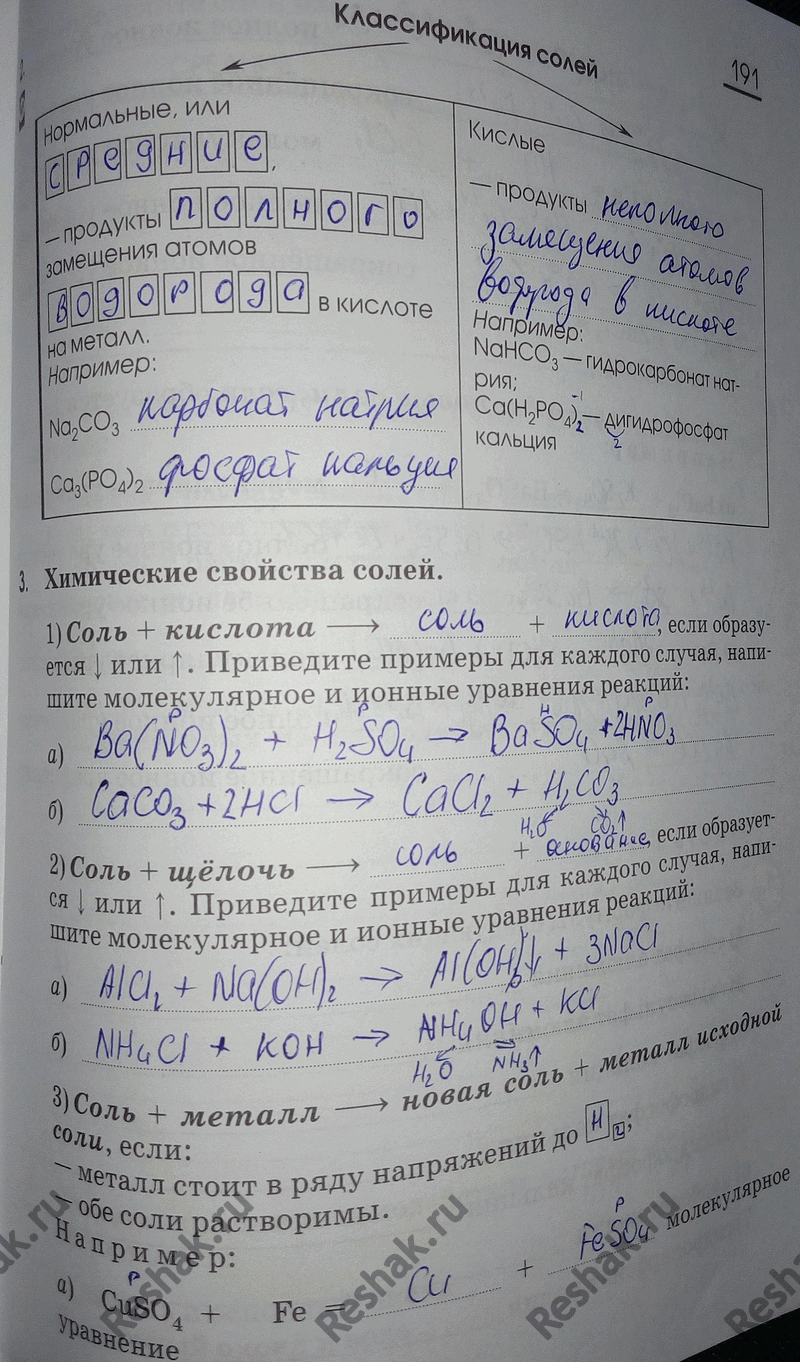 Классификация солей
191
Нормальные, или
средние,
– продукты полного
замещения атомов
водорода в кислоте
на металл.
Например:
Na₂CO₃ карбонат натрия
Ca₃(PO₄)₂ фосфат кальция
Кислые
– продукты неполного
замещения атомов
водорода в кислоте
Например:
NaHCO₃ — гидрокарбонат нат-
рия;
-1
Ca(H₂PO₄)₂ — дигидрофосфат
2
кальция
3. Химические свойства солей.
1) Соль + кислота ⟶ соль + кислота, если образу-
ется ↓ или ↑. Приведите примеры для каждого случая, напи-
шите молекулярное и ионные уравнения реакций:
Р Р Н Р
а) Ba(NO₃)₂ + H₂SO₄ → BaSO₄ + 2HNO₃
б) CaCO₃ + 2HCl → CaCl₂ + H₂CO₃
H₂O CO₂↑
2) Соль + щёлочь ⟶ соль + основание, если образует-
ся ↓ или ↑. Приведите примеры для каждого случая, напи-
шите молекулярное и ионные уравнения реакций:
а) AlCl₂ + Na(OH)₂ → Al(OH)↓ + 3NaCl
б) NH₄Cl + KOH → NH₄OH + KCl
H₂O NH₃↑
3) Соль + металл ⟶ новая соль + металл исходной
соли, если:
– металл стоит в ряду напряжений до H₂;
– обе соли растворимы.
Например:
Р Р
а) CuSO₄ + Fe = Cu + FeSO₄ молекулярное
уравнение
Reshak.ru
Reshak.ru
Reshak.ru
Reshak.ru